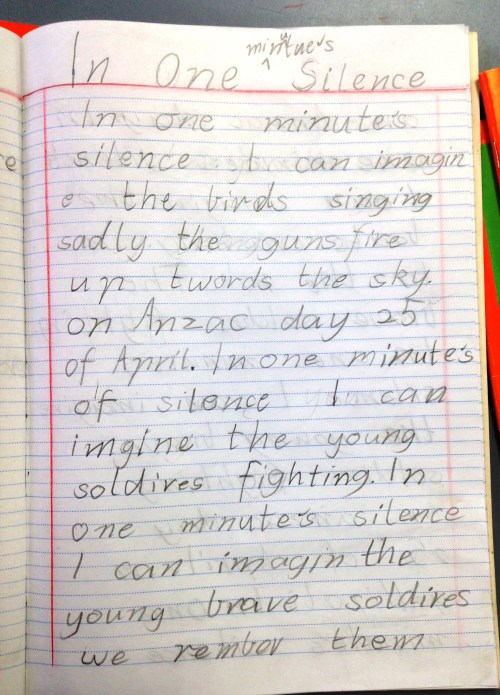 In One minutue's Silence
In one minute's
silence I can imagin
e the birds singing
sadly the guns fire
up twords the sky.
on Anzac day 25
of April. In one minute's
of silence I can
imgine the young
soldires fighting. In
one minute's silence
I can imagin the
young brave soldires
we rember them